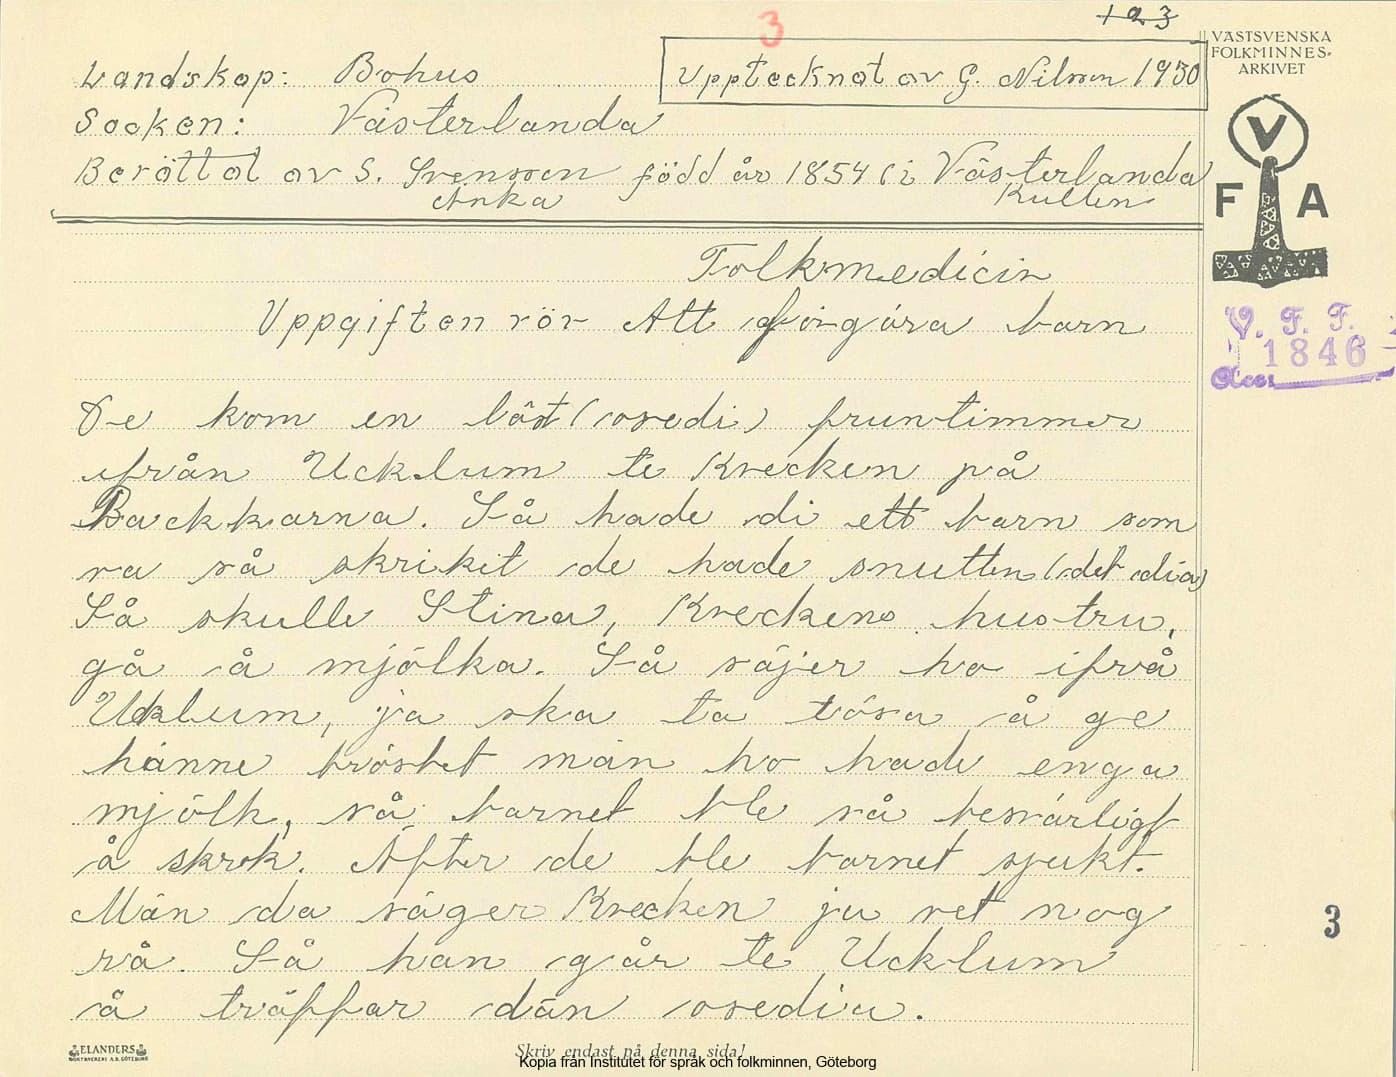 123
3
VÄSTSVENSKA
FOLKMINNES-
ARKIVET
Landskap: Bohus
Upptecknat av G. Nilsson 1930
Socken: Västerlanda
Berättat av S. Svensson född år 1854 i Västerlanda
Änka Kullen
V
F A
Folkmedicin
Uppgiften rör Att förgöra barn
V. F. F.
1846
Acc:
De kom en låst (osedi) fruntimmer
ifrån Ucklum te Krecken på
Backkarna. Så hade di ett barn som
va så skriket de hade snutten (det dia)
Så skulle Stina, Kreckens hustru,
gå å mjölka. Så säjer ho ifrå
Ucklum, ja ska ta tösa å ge
hänne bröstet män ho hade enga
mjölk, så barnet ble så besvärligt
å skrek. Äfter de ble barnet sjukt.
Män da säger Krecken ju vet nog
rå. Så han går te Ucklum
å träffar dän osedia.
3
ELANDERS
BOKTRYCKERI A.B. GÖTEBORG
Skriv endast på denna sida!
Kopia från Institutet för språk och folkminnen, Göteborg